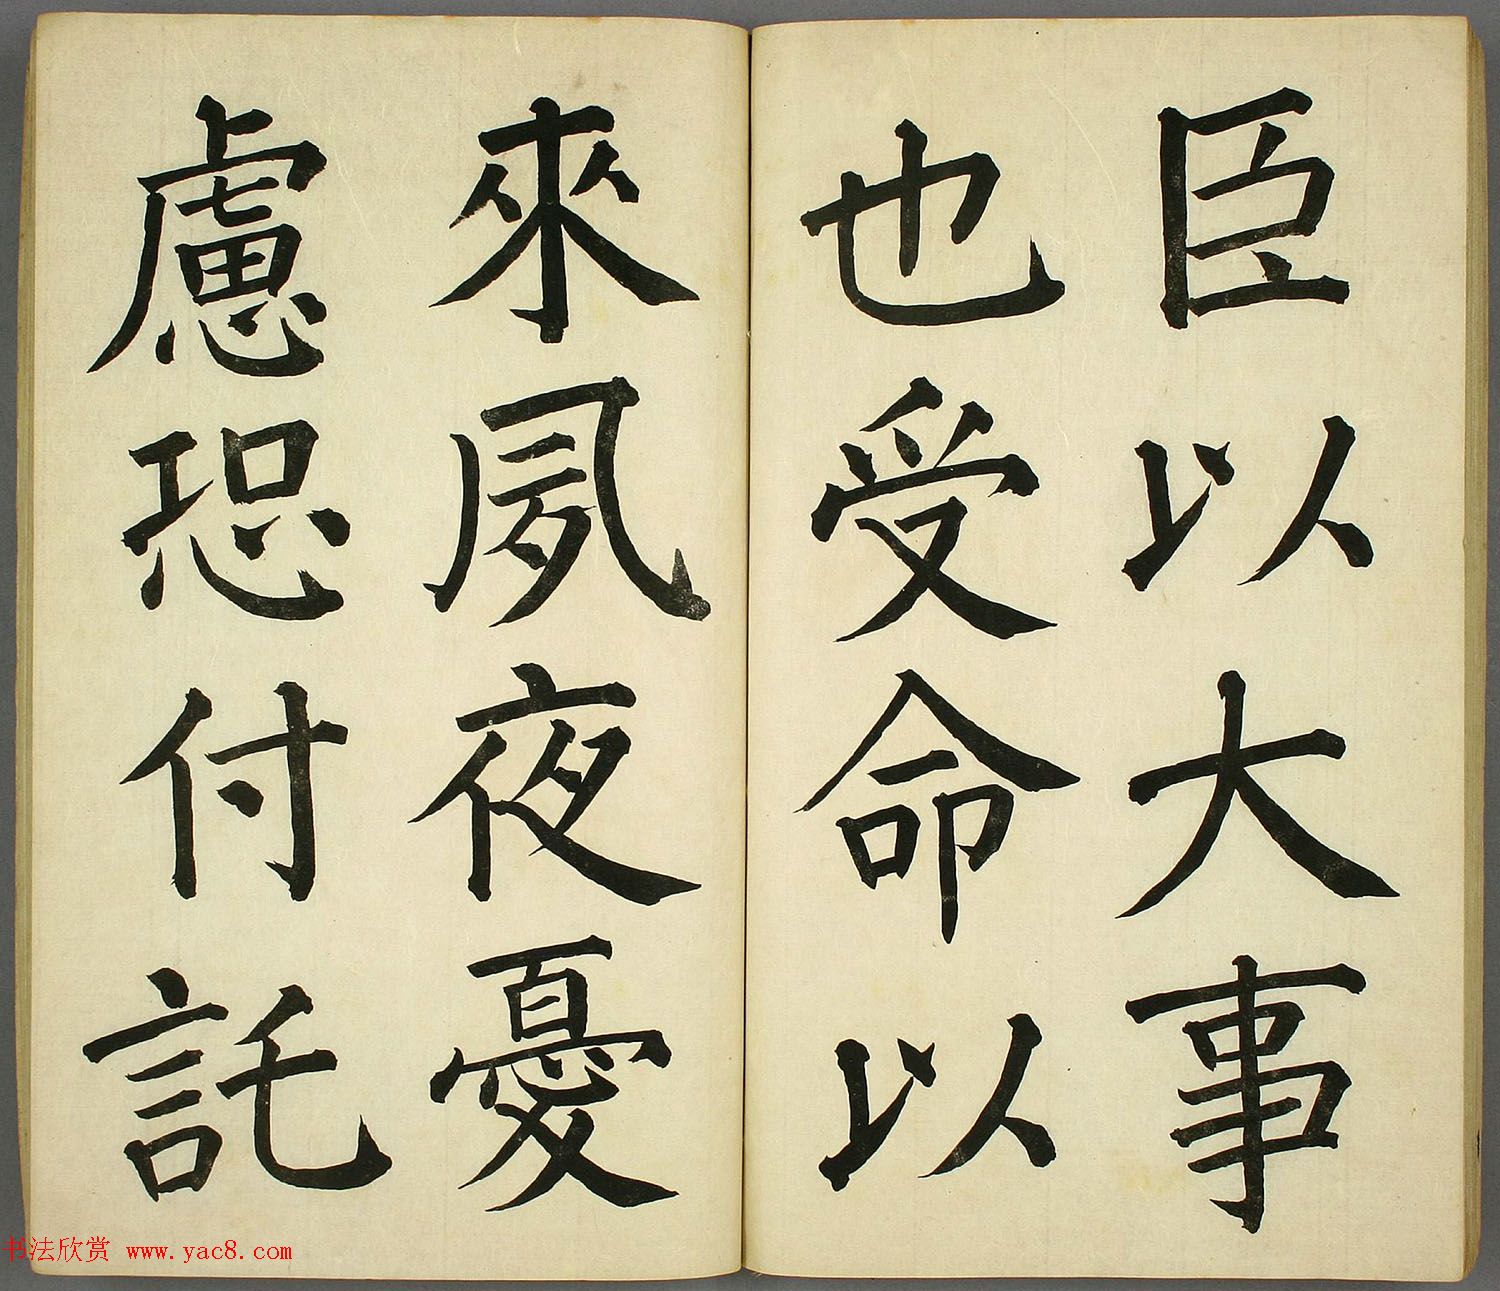 臣以大事
也受命以
來夙夜憂
慮恐付託
书法欣赏 www.yac8.com